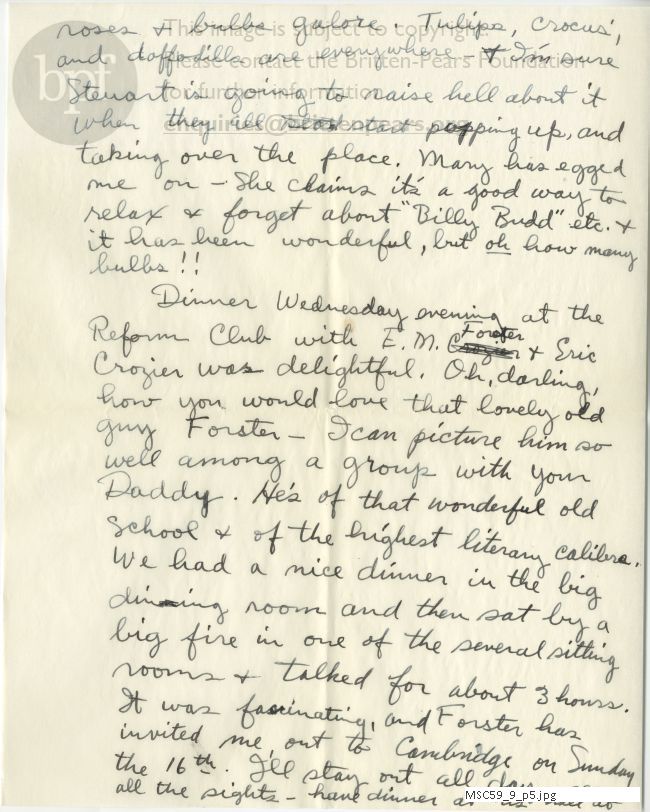 roses & bulbs galore. Tulips, crocus',
and daffodills are everywhere - & I'm sure
Steuart is going to raise hell about it
when they all start popping up, and
taking over the place. Mary has egged
me on - She claims it's a good way to
relax & forget about "Billy Budd" etc. &
it has been wonderful, but oh how many
bulbs!!
Dinner Wednesday evening at the
Reform Club with E. M. Crozier Forster & Eric
Crozier was delightful. Oh, darling,
how you would love that lovely old
guy Forster - I can picture him so
well among a group with your
Daddy. He's of that wonderful old
school & of the highest literary calibere.
We had a nice dinner in the big
dinning room and then sat by a
big fire in one of the several sitting
rooms & talked for about 3 hours.
It was fascinating, and Forster has
invited me out to Cambridge on Sunday
the 16th. I'll stay out all day
all the sights - have dinner at
bpf
This image is subject to copyright.
Please contact the Britten-Pears Foundation
for further information.
enquiries@brittenpears.org
MSC59_9_p5.jpg